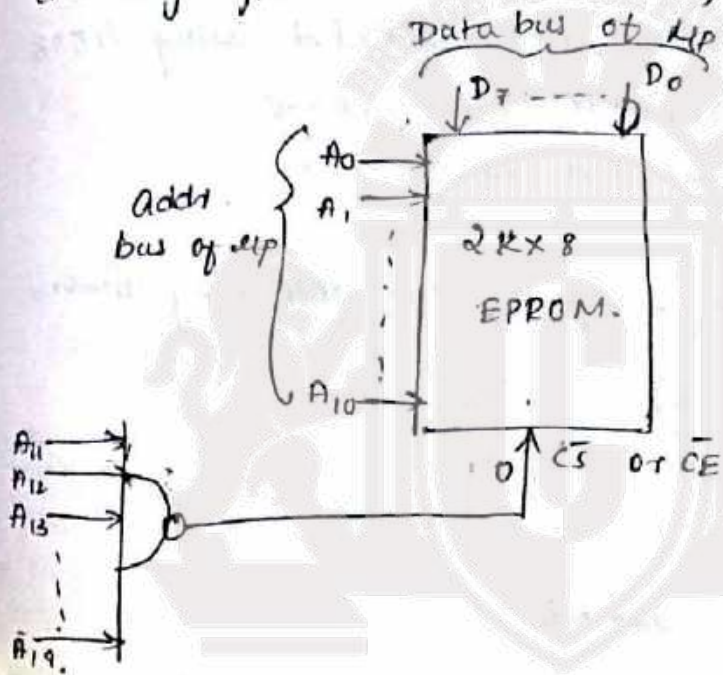 Data bus of μp
D7 ---- D0
A0
A1
addr.
bus of μp
2K×8
EPROM.
A10
0 C̅S̅ or C̅E̅
A11
A12
A13
A19.